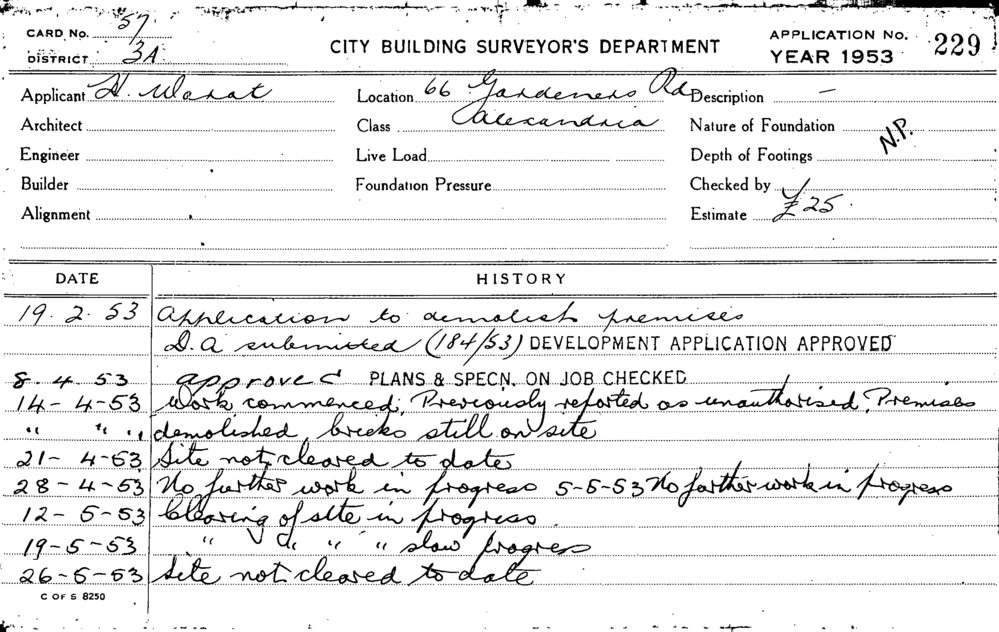 CARD No. 57
DISTRICT 3A
CITY BUILDING SURVEYOR'S DEPARTMENT
APPLICATION No. 229
YEAR 1953
Applicant H. Warat
Location 66 Gardeners Rd
Description —
Architect
Class Alexandria
Nature of Foundation N.P.
Engineer
Live Load
Depth of Footings
Builder
Foundation Pressure
Checked by
Alignment
Estimate £25.
DATE HISTORY
19. 2. 53 Application to demolish premises
D.A submitted (184/53) DEVELOPMENT APPLICATION APPROVED
8. 4. 53 approved PLANS & SPECN. ON JOB CHECKED
14- 4-53 Work commenced, Previously reported as unauthorised, Premises
" " " demolished, bricks still on site
21- 4-53 Site not cleared to date
28-4-53 No further work in progress 5-5-53 No further work in progress
12- 5-53 Clearing of site in progress
19-5-53 " " " " slow progress
26-5-53 Site not cleared to date
C OF S 8250